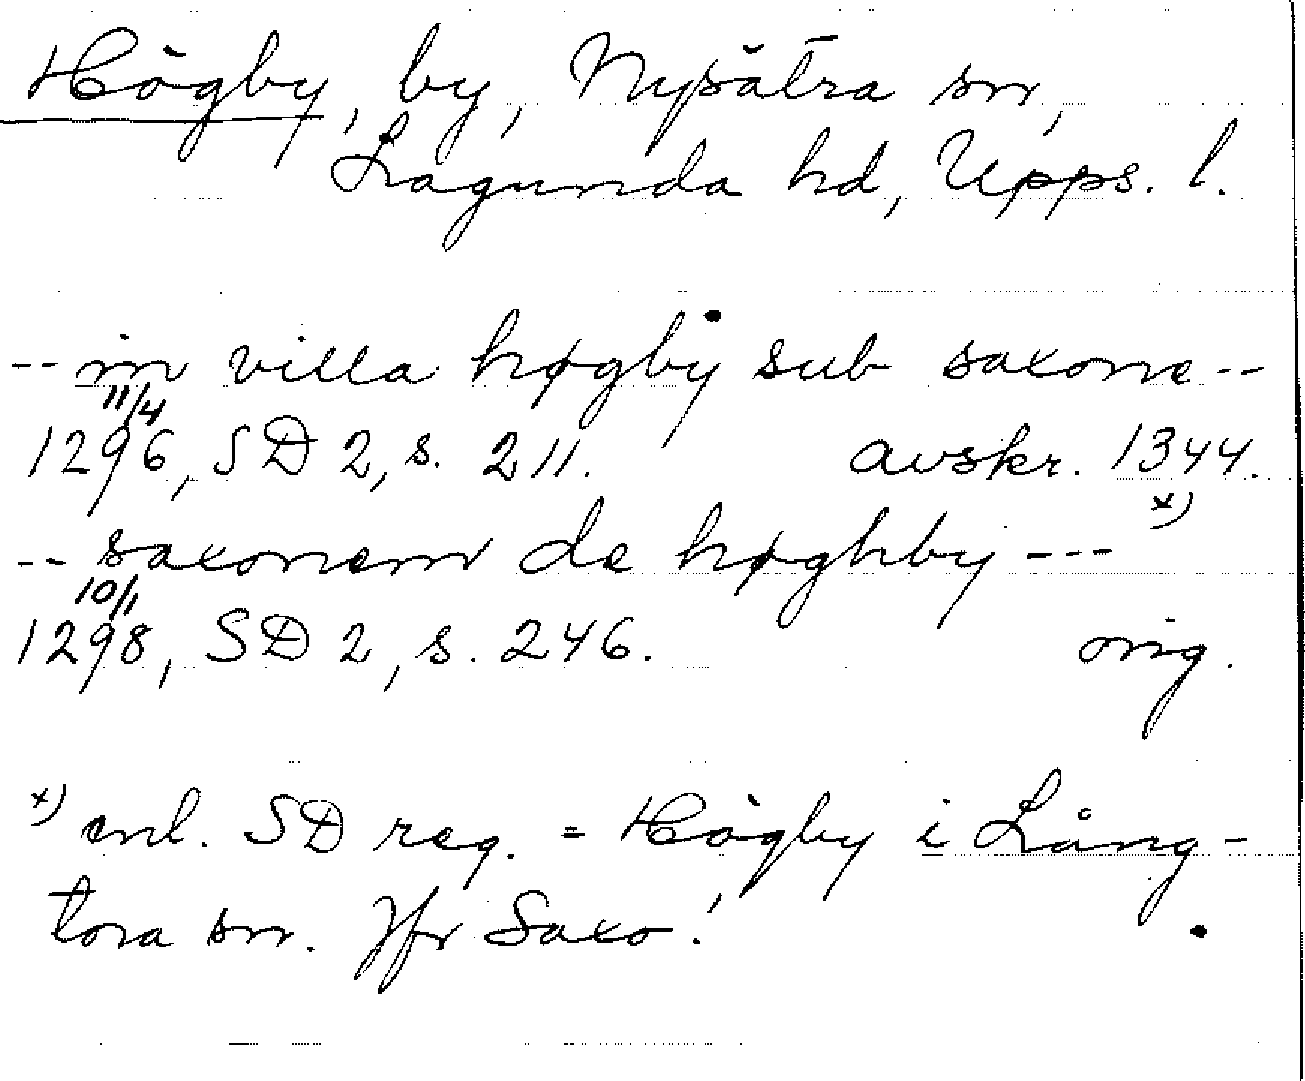 Högby, by, Nysätra sn,
Lagunda hd, Upps. l.
-- in villa høgby sub saxone --
11/4
1296, SD 2, s. 211. avskr. 1344.
-- saxonem de høghby --- x)
10/1
1298, SD 2, s. 246. orig.
x) enl. SD reg. = Högby i Lång-
tora sn. Jfr Saxo!